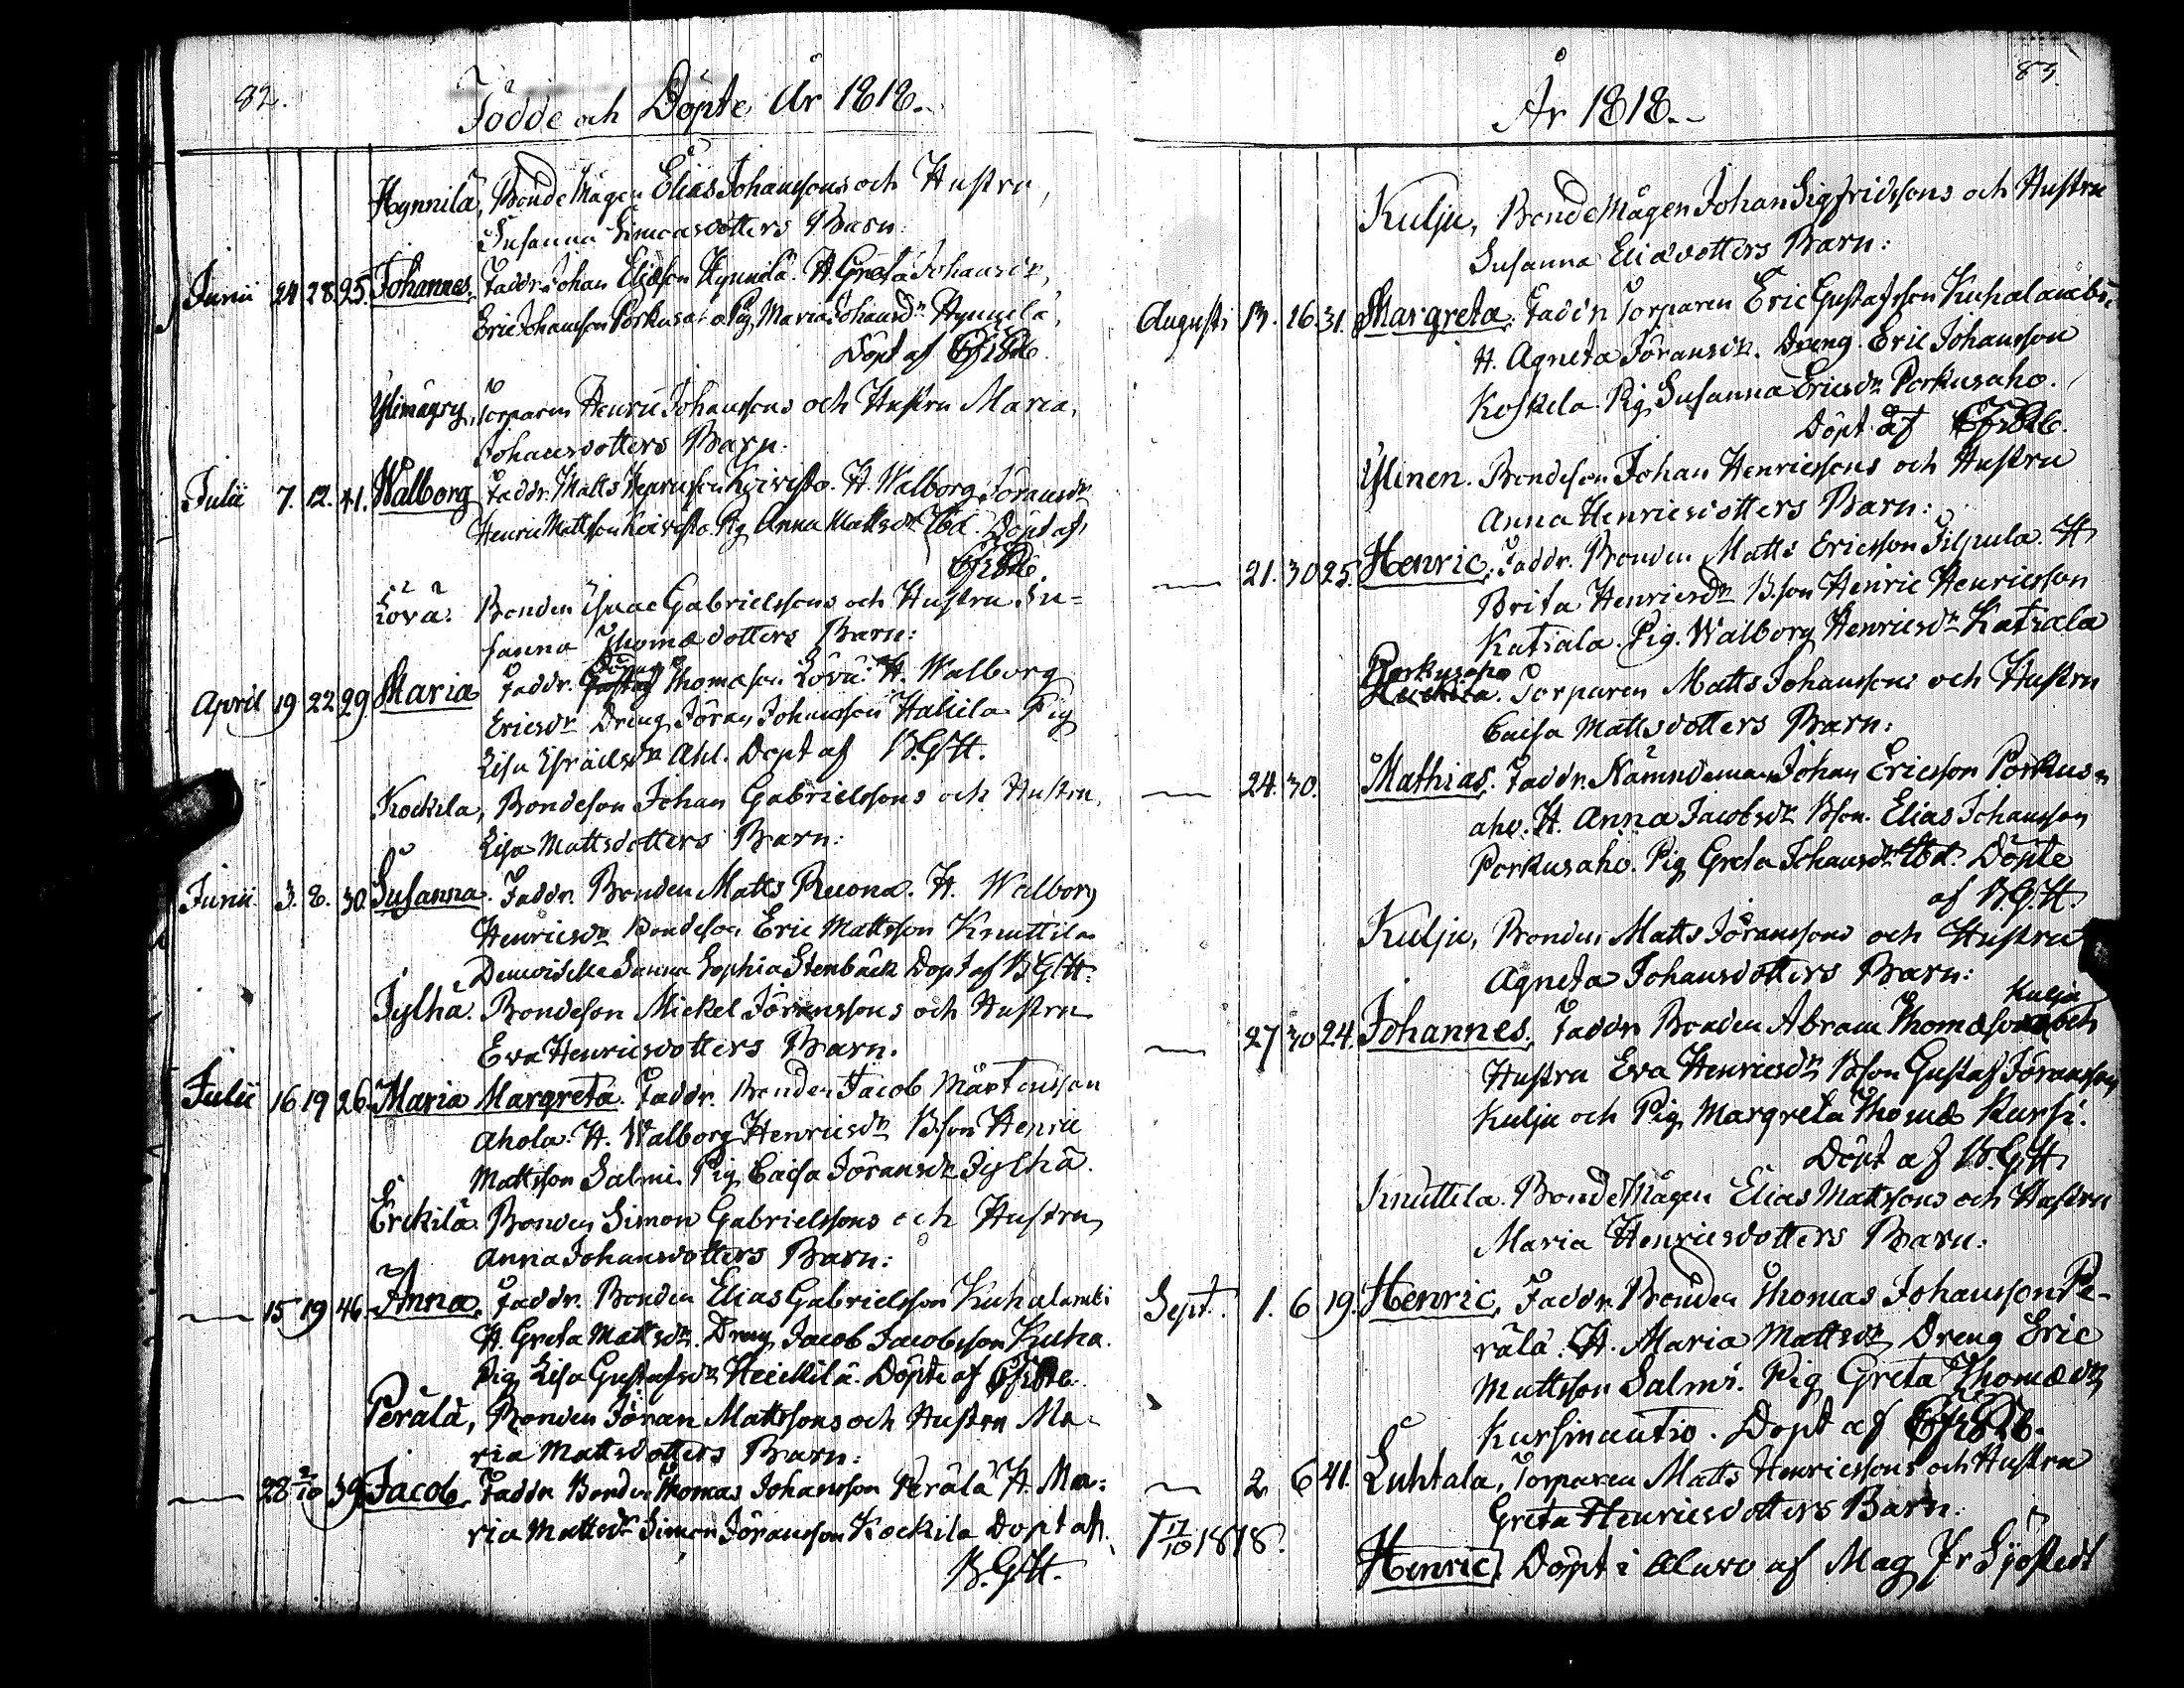 82.
Födde och Döpte År 1818.
Hynnilä, BondeMågen Elias Johanssons och Hustru
Susanna Simonsdotters Barn:
Junii 24 28. 25. Johannes. Faddr. Johan Eliæson Hynnilä. H. Greta Johansdr,
Eric Johansson Porkusaho Pig. Maria Johansdr Hynnilä,
Döpt af
Ylimägry, Torparen Henric Johanssons och Hustru Maria
Johansdotters Barn.
Julii 7. 12. 41. Walborg Faddr. Matts Henricsson Koivisto. H. Walborg Jöransdr
Henric Mattsson Koivisto. Pig Anna Mattsdr Ibd. Döpt af
Löva. Bonden Isaac Gabrielssons och Hustru Su=
sanna Thomædotters Barn:
April 19 22 29. Maria Faddr. Jöran Thomæson Löva. H. Walborg
Ericsdr Dreng Jöran Johansson Hakila Pig
Lisa Israelsdr Ahl. Döpt af B.G.H.
Kockila, Bondeson Johan Gabrielssons och Hustru
Lisa Mattsdotters Barn:
Junii 3. 8. 30. Susanna. Faddr. Bonden Matts Ruona. H. Walborg
Henricsdr Bondeson Eric Mattsson Knuttila
Demoiselle Sanna Sophia Stenbäck Döpt af B.G.H.
Jylhä. Bondeson Mickel Jöranssons och Hustru
Eva Henricsdotters Barn.
Julii 16 19 26. Maria Margreta. Faddr. Bonden Jacob Mårtensson
Ahola. H. Walborg Henricsdr B.son Henric
Mattsson Salmi. Pig Caisa Jöransdr Jylhä.
Erckilä Bonden Simon Gabrielssons och Hustru
Anna Johansdotters Barn:
— 15 19 46. Anna. Faddr. Bonden Elias Gabrielsson Kuhalambi
H. Greta Mattsdr. Dreng Jacob Jacobsson Kuha.
Pig Lisa Gustafsdr Heickilä. Döpte af
Perälä, Bonden Jöran Mattssons och Hustru Ma-
ria Mattsdotters Barn:
— 28 2/10 39. Jacob. Faddr Bonden Thomas Johansson Perälä H. Ma=
ria Mattsdr Simon Jöransson Kockila Döpt af
B.G.H.
83.
År 1818.
Kulju, BondeMågen Johan Sigfridssons och Hustru
Susanna Eliædotters Barn:
Augusti 13. 16. 31. Margreta. Faddr Torparen Eric Gustafsson Kuhalambi.
H. Agneta Jöransdr. Dreng Eric Johansson
Koskela. Pig Susanna Ericsdr Porkusaho.
Döpt af
Ylinen. Bondeson Johan Henricssons och Hustru
Anna Henricsdotters Barn:
— 21. 30 25. Henric. Faddr. Bonden Matts Ericsson Filpula. H
Brita Henricsdr B.son Henric Henricsson
Katiala. Pig. Walborg Henricsdr Katiala
Porkusaho
Torparen Matts Johanssons och Hustru
Caisa Mattsdotters Barn:
— 24. 30. Mathias. Faddr. Nämndeman Johan Ericsson Porkus-
aho. H. Anna Jacobsdr Bson. Elias Johansson
Porkusaho. Pig Greta Johansdr Ibd. Döpte
af B.G.H.
Kulju, Bonden Matts Jöranssons och Hustru
Agneta Johansdotters Barn:
Kulju
— 27 30 24. Johannes. Faddr Bonden Abram Thomæson och
Hustru Eva Henricsdr Bson Gustaf Jöransson
Kulju och Pig Margreta Thomæ Kursi.
Döpt af B.G.H.
Knuttila. BondeMågen Elias Mattssons och Hustru
Maria Henricsdotters Barn:
Sept. 1. 6 19. Henric. Faddr Bonden Thomas Johansson Pe-
rälä. H. Maria Mattsdr Dreng Eric
Mattsson Salmi. Pig Greta Thomædr
Kursinautio. Döpt af
— 2 6 41. Luhtala, Torparen Matts Henricssons och Hustru
Greta Henricsdotters Barn.
† 17/10 1818. Henric. Döpt i Alavo af Mag Fr Sjöstedt